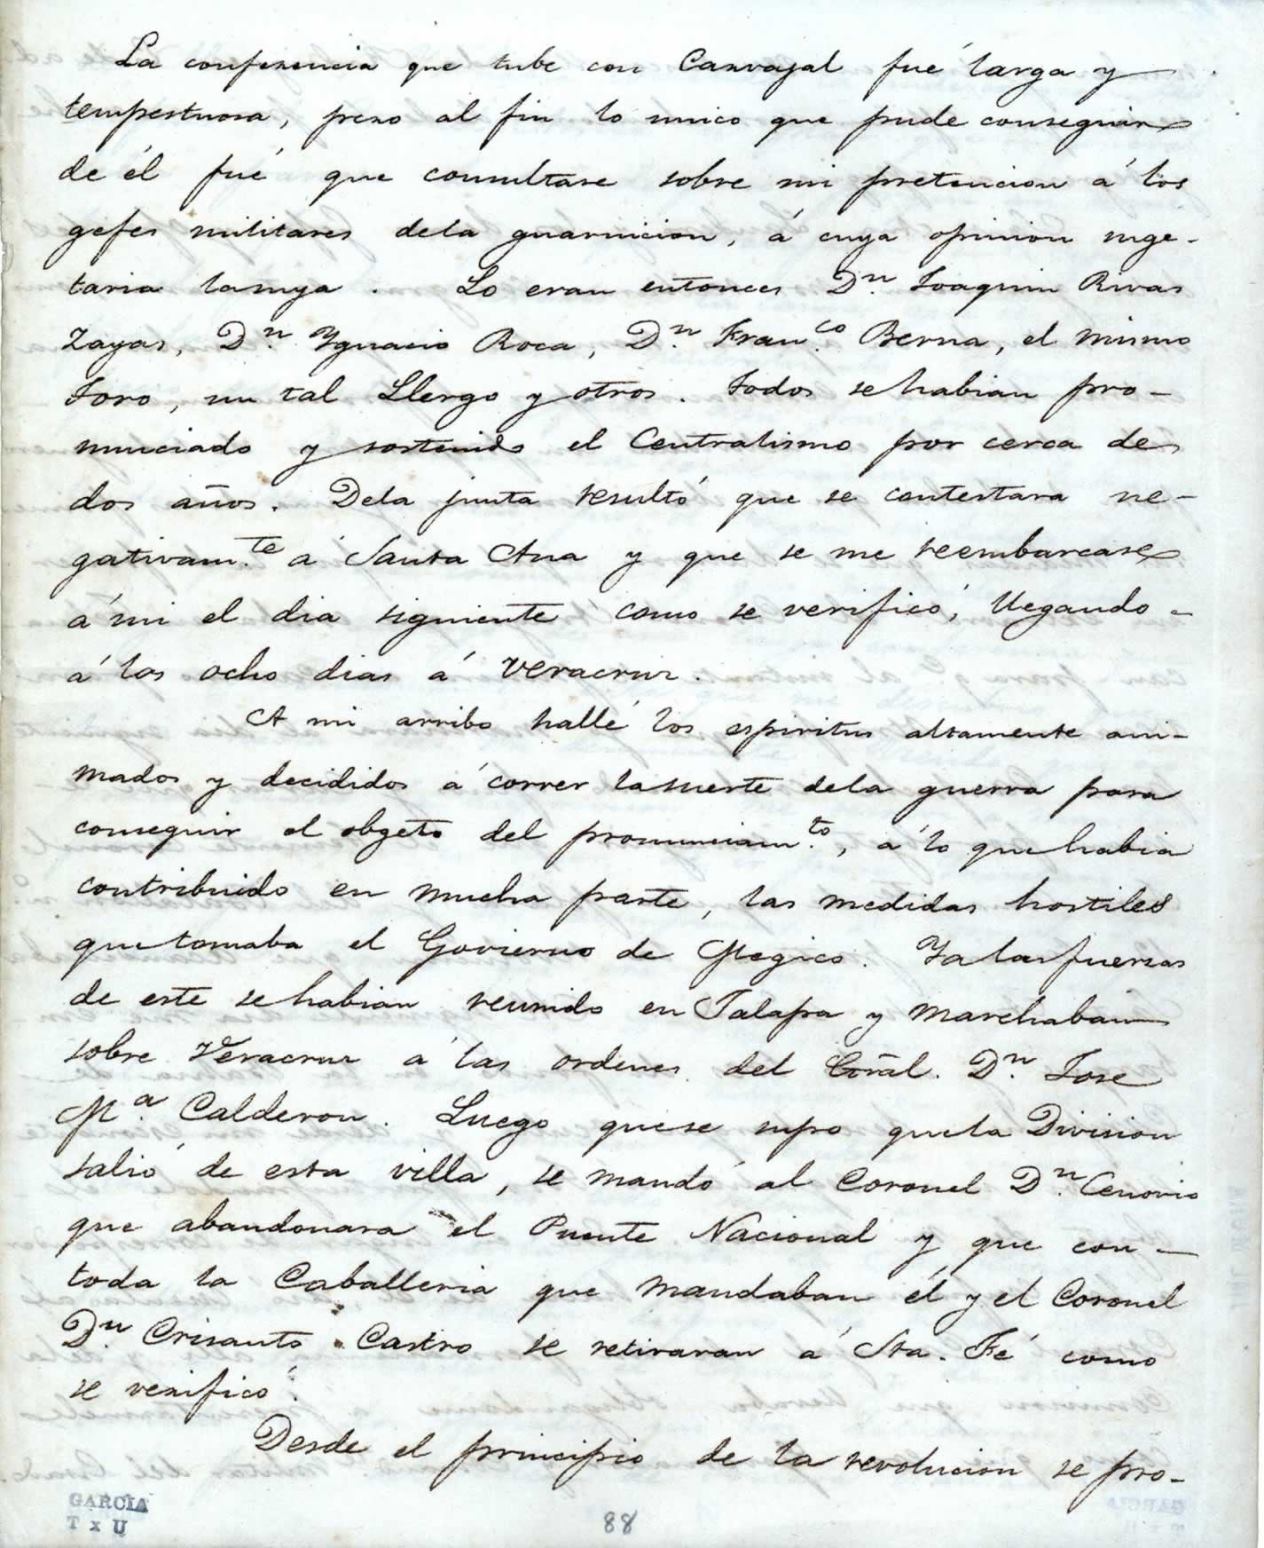 La conferencia que tube con Carvajal fué larga y
tempestuosa, pero al fin lo unico que pude conseguir
de él fué que consultase sobre mi pretencion á los
gefes militares dela guarnicion, á cuya opinion suge-
taria lasuya. Lo eran entonces Dn. Joaquin Rivas
Zayas, Dn. Ygnacio Roca, Dn. Franco. Berna, el mismo
Toro, un tal Llergo y otros. Todos sehabian pro-
nunciado y sostenido el Centralismo por cerca de
dos años. Dela junta resultó que se contestara ne-
gativamte. á Santa Ana y que se me reembarcase
á mi el dia siguiente como se verificó, llegando
á los ocho dias á Veracruz.
A mi arribo hallé los espiritus altamente ani-
mados y decididos á correr lasuerte dela guerra para
conseguir el obgeto del pronunciamto., á lo quehabia
contribuido en mucha parte, las medidas hostiles
quetomaba el Govierno de Megico. Ya lasfuerzas
de este sehabian reunido en Jalapa y marchaban
sobre Veracruz á las ordenes del Gral. Dn. Jose
Ma. Calderon. Luego quese supo quela Division
salió de esta villa, se mandó al Coronel Dn. Cenovio
que abandonara el Puente Nacional y que con
toda la Caballeria que mandaban él y el Coronel
Dn. Crisanto Castro se retiraran á Sta. Fé como
se verificó.
Desde el principio de la revolucion se pro-
GARCIA
T x U
88